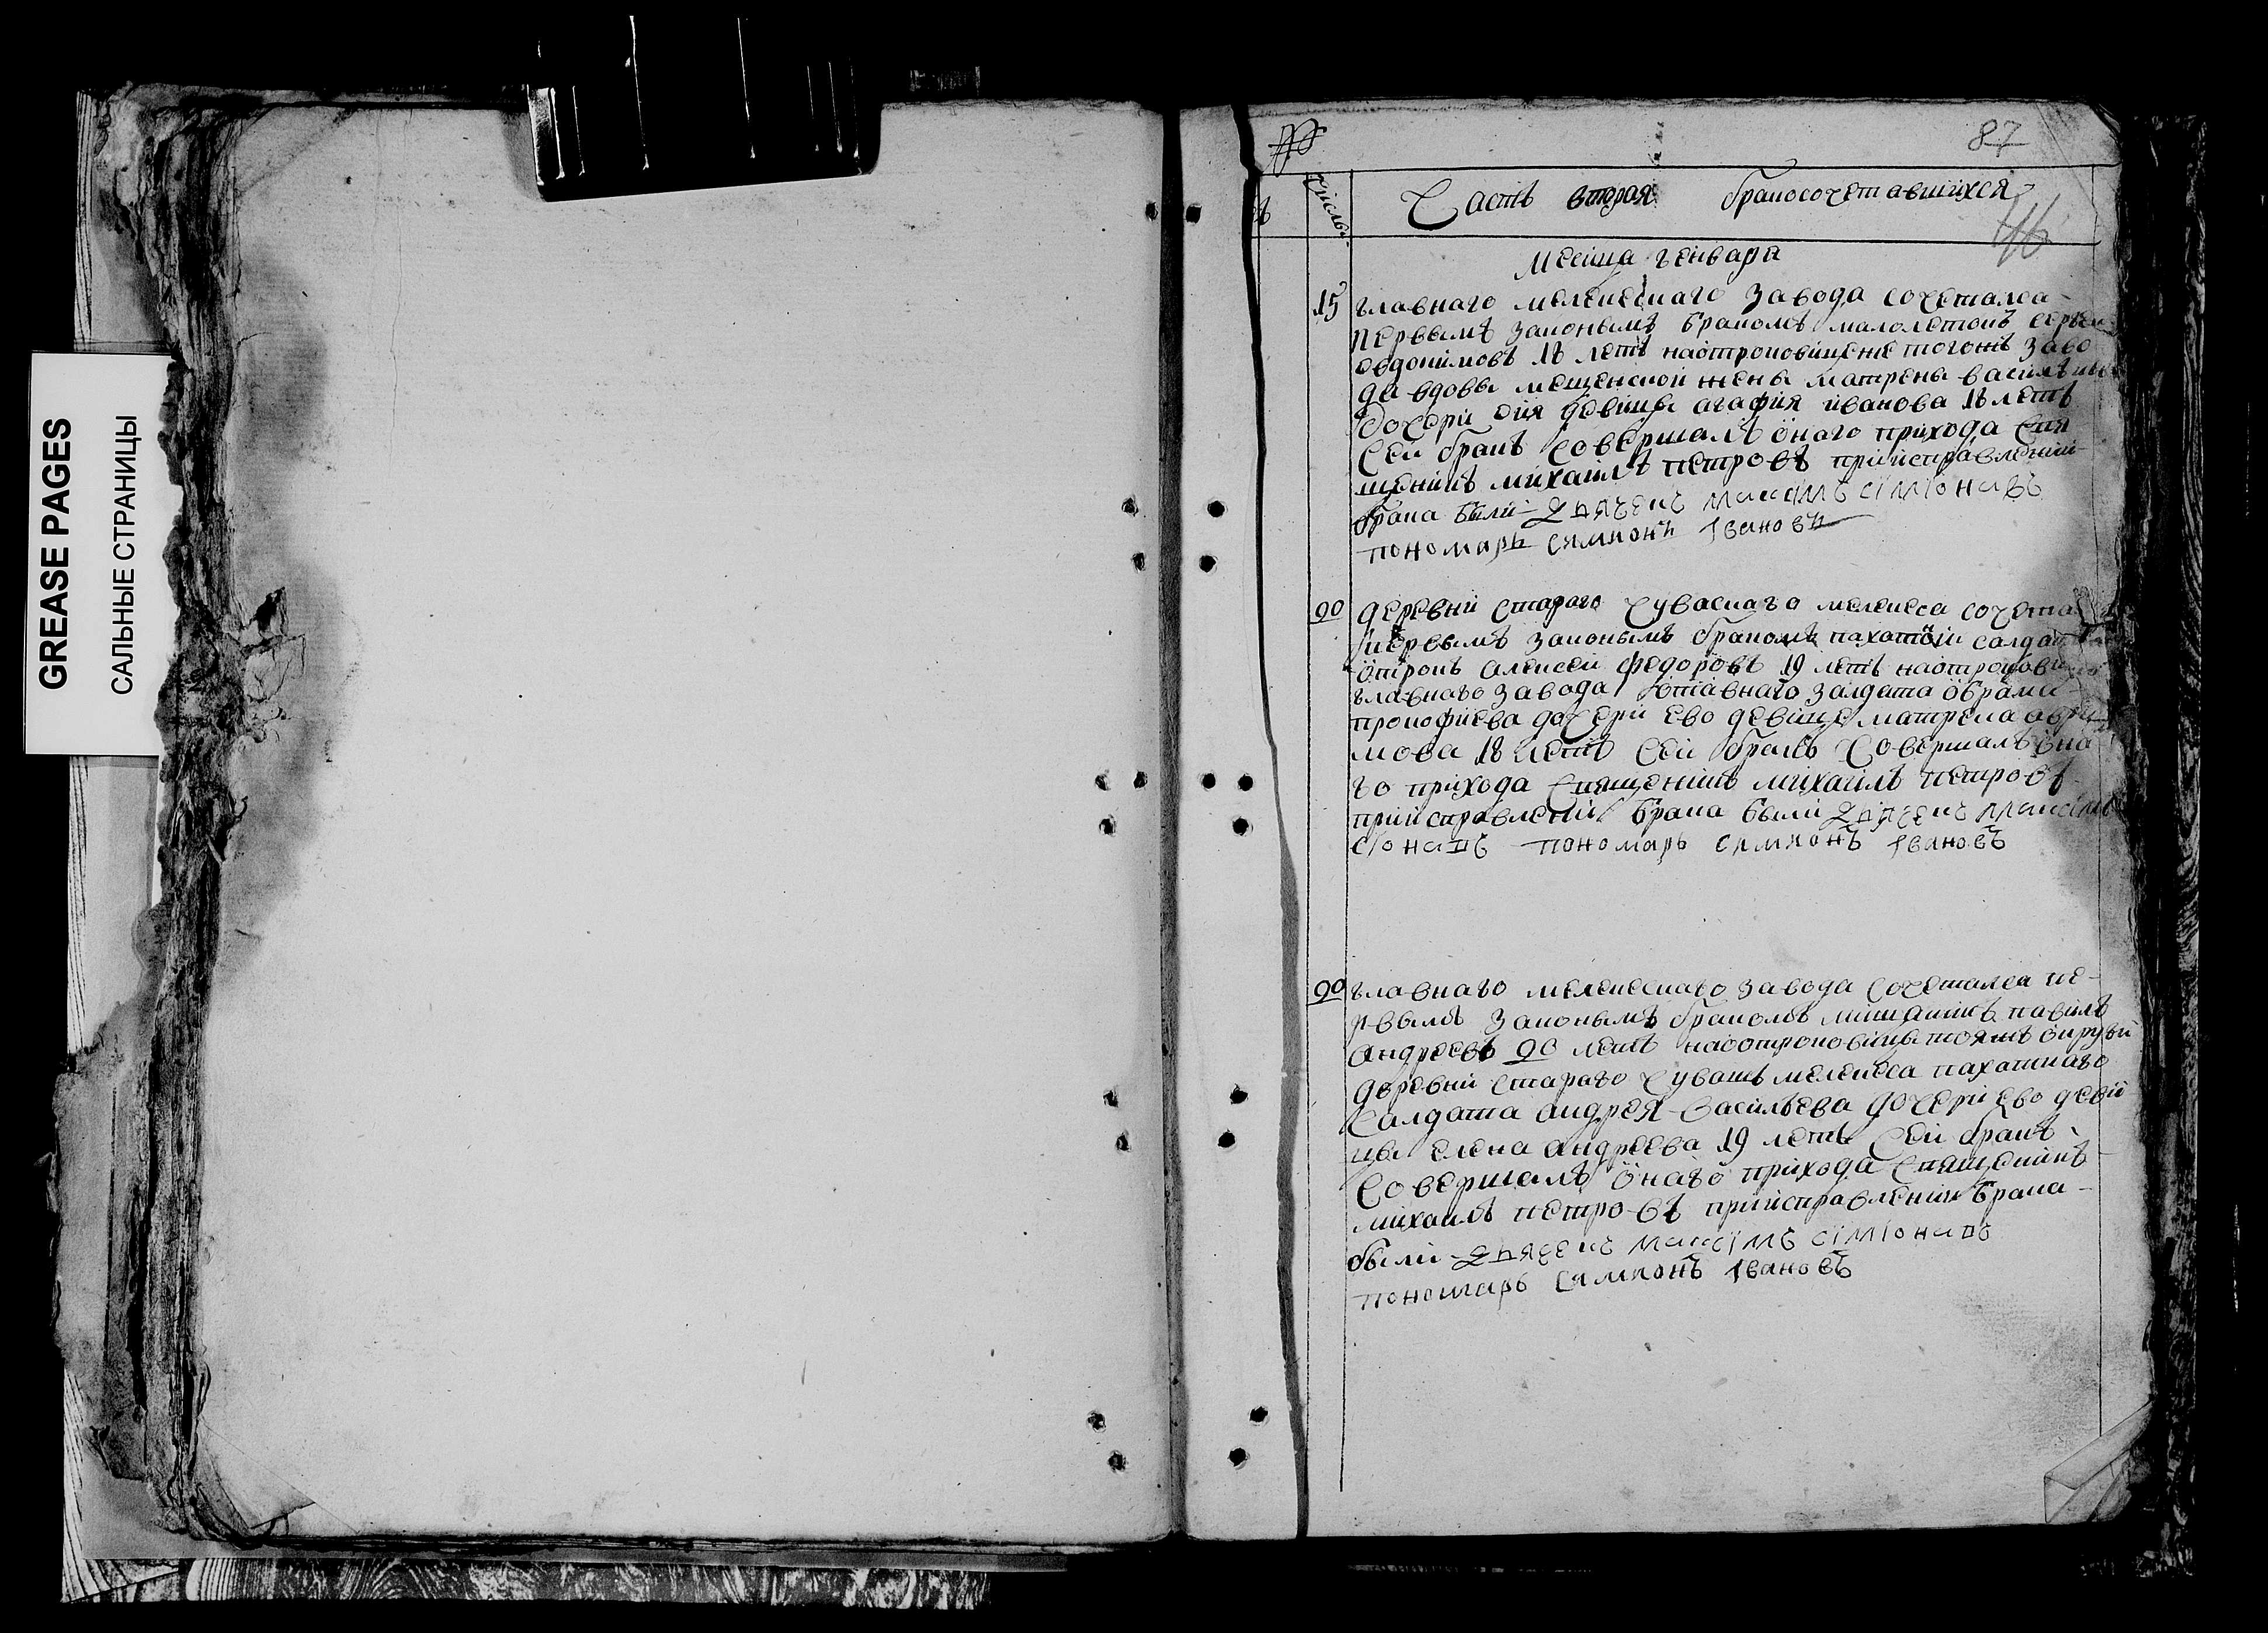 GREASE PAGES
САЛЬНЫЕ СТРАНИЦЫ
87
числа
Часть вторая бракосочетавшихся
46
месяца генваря
15 главнаго мелекескаго завода сочеталса
первымъ законымъ бракомъ малолетокъ
евдокимовъ 18 летъ наотроковице тогожъ заво
да вдовы мещенской жены матрены
дочери ея девицы агафия иванова 18 летъ
сей бракъ совершалъ онаго прихода свя
щеникъ михаилъ петровъ приисправлении
брака были дьячекъ максимъ симионавъ
пономарь симионъ Iвановъ
20 деревни стараго чуваскаго мелекеса
первымъ законымъ бракомъ пахатной
отрокъ алексеи федоровъ 19 летъ
главнаго завода отставнаго залдата
прокофиева дочери ево девице матрена
мова 18 летъ сей бракъ совершалъ она
го прихода священикъ михаилъ петровъ
приисправлении брака были дьячекъ максимъ
сionавъ пономарь симионъ Iвановъ
20 главнаго мелекескаго завода сочеталса пе-
рвымъ законымъ бракомъ мищанинъ павилъ
андреевъ 20 летъ наотроковицы тояжъ округи
деревни стараго чувашъ мелекеса пахатнаго
салдата андрея васильева дочери ево деви
цы елена андреева 19 летъ сей бракъ
совершалъ онаго прихода священикъ
михаилъ петровъ приисправлении брака
были дьячекъ максимъ симионавъ
пономарь симионъ Iвановъ